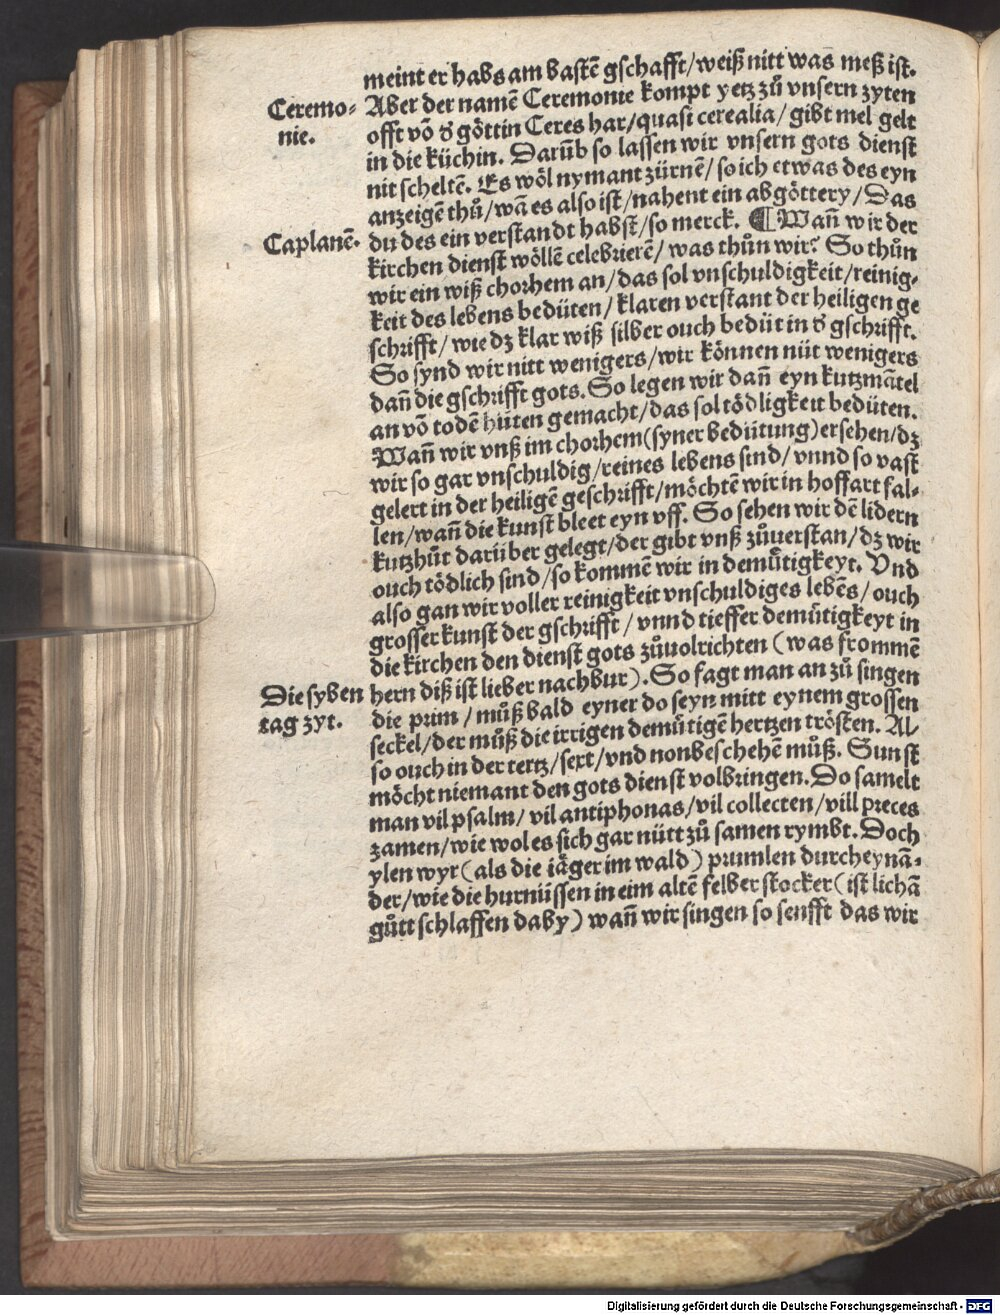 meint er habs am bastē gschafft/weiß nitt was meß ist.
Ceremo-
nie.
Aber der namē Ceremonie kompt yetz zů vnsern zyten
offt vō d' göttin Ceres har/quasi cerealia/gibt mel gelt
in die küchin. Darūb so lassen wir vnsern gots dienst
nit scheltē. Es wöl nymant zürnē/so ich etwas des eyn
anzeigē thů/wā es also ist/nahent ein abgöttery/Das
Caplanē.
du des ein verstandt habst/so merck. ¶Wañ wir der
kirchen dienst wöllē celebrierē/was thůn wir? So thůn
wir ein wiß chorhem an/das sol vnschuldigkeit/reinig-
keit des lebens bedüten/klaren verstant der heiligen ge
schrifft/wie dz klar wiß silber ouch bedüt in d' gschrifft.
So synd wir nitt wenigers/wir können nüt wenigers
dañ die gschrifft gots. So legen wir dañ eyn kutzmātel
an vō todē hüten gemacht/das sol tödligkeit bedüten.
Wañ wir vnß im chorhem(syner bedütung)ersehen/dz
wir so gar vnschuldig/reines lebens sind/vnnd so vast
gelert in der heiligē geschrifft/möchtē wir in hoffart fal-
len/wañ die kunst bleet eyn vff. So sehen wir dē lidern
kutzhůt darüber gelegt/der gibt vnß zůuerstan/dz wir
ouch tödlich sind/so kommē wir in demůtigkeyt. Vnd
also gan wir voller reinigkeit vnschuldiges lebēs/ouch
grosser kunst der gschrifft/vnnd tieffer demůtigkeyt in
die kirchen den dienst gots zůuolrichten (was frommē
Die syben
tag zyt.
hern diß ist lieber nachbur). So fagt man an zů singen
die prim/můß bald eyner do seyn mitt eynem grossen
seckel/der můß die irrigen demůtigē hertzen trösten. Al-
so ouch in der tertz/sext/vnd non beschehē můß. Sunst
möcht niemant den gots dienst volbringen. Do samelt
man vil psalm/vil antiphonas/vil collecten/vill preces
zamen/wie wol es sich gar nütt zů samen rymbt. Doch
ylen wyr(als die iäger im wald) prumlen durcheynā-
der/wie die hurnüssen in eim altē felberstocker(ist lichā
gůtt schlaffen daby) wañ wir singen so senfft das wir
Digitalisierung gefördert durch die Deutsche Forschungsgemeinschaft - DFG